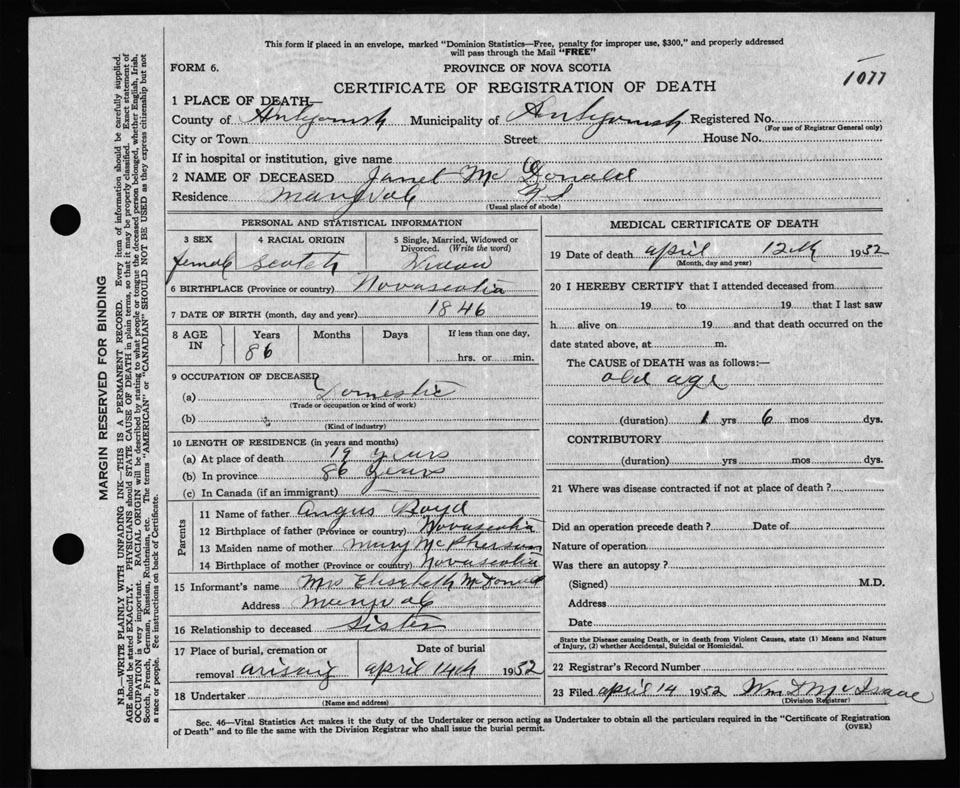 This form if placed in an envelope, marked "Dominion Statistics—Free, penalty for improper use, $300," and properly addressed
will pass through the Mail "FREE"
FORM 6.
PROVINCE OF NOVA SCOTIA
1077
CERTIFICATE OF REGISTRATION OF DEATH
1 PLACE OF DEATH—
County of Antigonish Municipality of Antigonish Registered No.
(For use of Registrar General only)
City or Town Street House No.
If in hospital or institution, give name
2 NAME OF DECEASED Janet Mc Donald
Residence Maryvale NS
(Usual place of abode)
PERSONAL AND STATISTICAL INFORMATION
3 SEX 4 RACIAL ORIGIN 5 Single, Married, Widowed or
Divorced. (Write the word)
female Scotch Widow
6 BIRTHPLACE (Province or country) Novascotia
7 DATE OF BIRTH (month, day and year) 1846
8 AGE IN Years Months Days If less than one day,
86 hrs. or min.
9 OCCUPATION OF DECEASED
(a) Domestic
(Trade or occupation or kind of work)
(b)
(Kind of industry)
10 LENGTH OF RESIDENCE (in years and months)
(a) At place of death 19 years
(b) In province 86 years
(c) In Canada (if an immigrant) —
Parents
11 Name of father Angus Boyd
12 Birthplace of father (Province or country) Novascotia
13 Maiden name of mother Mary McPherson
14 Birthplace of mother (Province or country) Novascotia
15 Informant's name Mrs Elisebeth McDonald
Address Maryvale
16 Relationship to deceased Sister
17 Place of burial, cremation or Date of burial
removal arisaig april 14th 1932
18 Undertaker
(Name and address)
MEDICAL CERTIFICATE OF DEATH
19 Date of death april 12th 1932
(Month, day and year)
20 I HEREBY CERTIFY that I attended deceased from
19 to 19 that I last saw
h alive on 19 and that death occurred on the
date stated above, at m.
The CAUSE of DEATH was as follows:—
old age
(duration) 1 yrs 6 mos dys.
CONTRIBUTORY
(duration) yrs mos dys.
21 Where was disease contracted if not at place of death?
Did an operation precede death? Date of
Nature of operation
Was there an autopsy?
(Signed) M.D.
Address
Date
State the Disease causing Death, or in death from Violent Causes, state (1) Means and Nature
of Injury, (2) whether Accidental, Suicidal or Homicidal.
22 Registrar's Record Number
23 Filed april 14 1932 Wm D McIsaac
(Division Registrar)
Sec. 46—Vital Statistics Act makes it the duty of the Undertaker or person acting as Undertaker to obtain all the particulars required in the "Certificate of Registration
of Death" and to file the same with the Division Registrar who shall issue the burial permit.
(OVER)
MARGIN RESERVED FOR BINDING
N.B.—WRITE PLAINLY WITH UNFADING INK—THIS IS A PERMANENT RECORD. Every item of information should be carefully supplied.
AGE should be stated EXACTLY. PHYSICIANS should STATE CAUSE OF DEATH in plain terms, so that it may be properly classified. Exact statement of
OCCUPATION is very important. RACIAL ORIGIN will be described by stating to what people or tongue the deceased person belonged, whether English, Irish,
Scotch, French, German, Russian, Ruthenian, etc. The terms "AMERICAN" or "CANADIAN" SHOULD NOT BE USED as they express citizenship but not
a race or people. See instructions on back of Certificate.